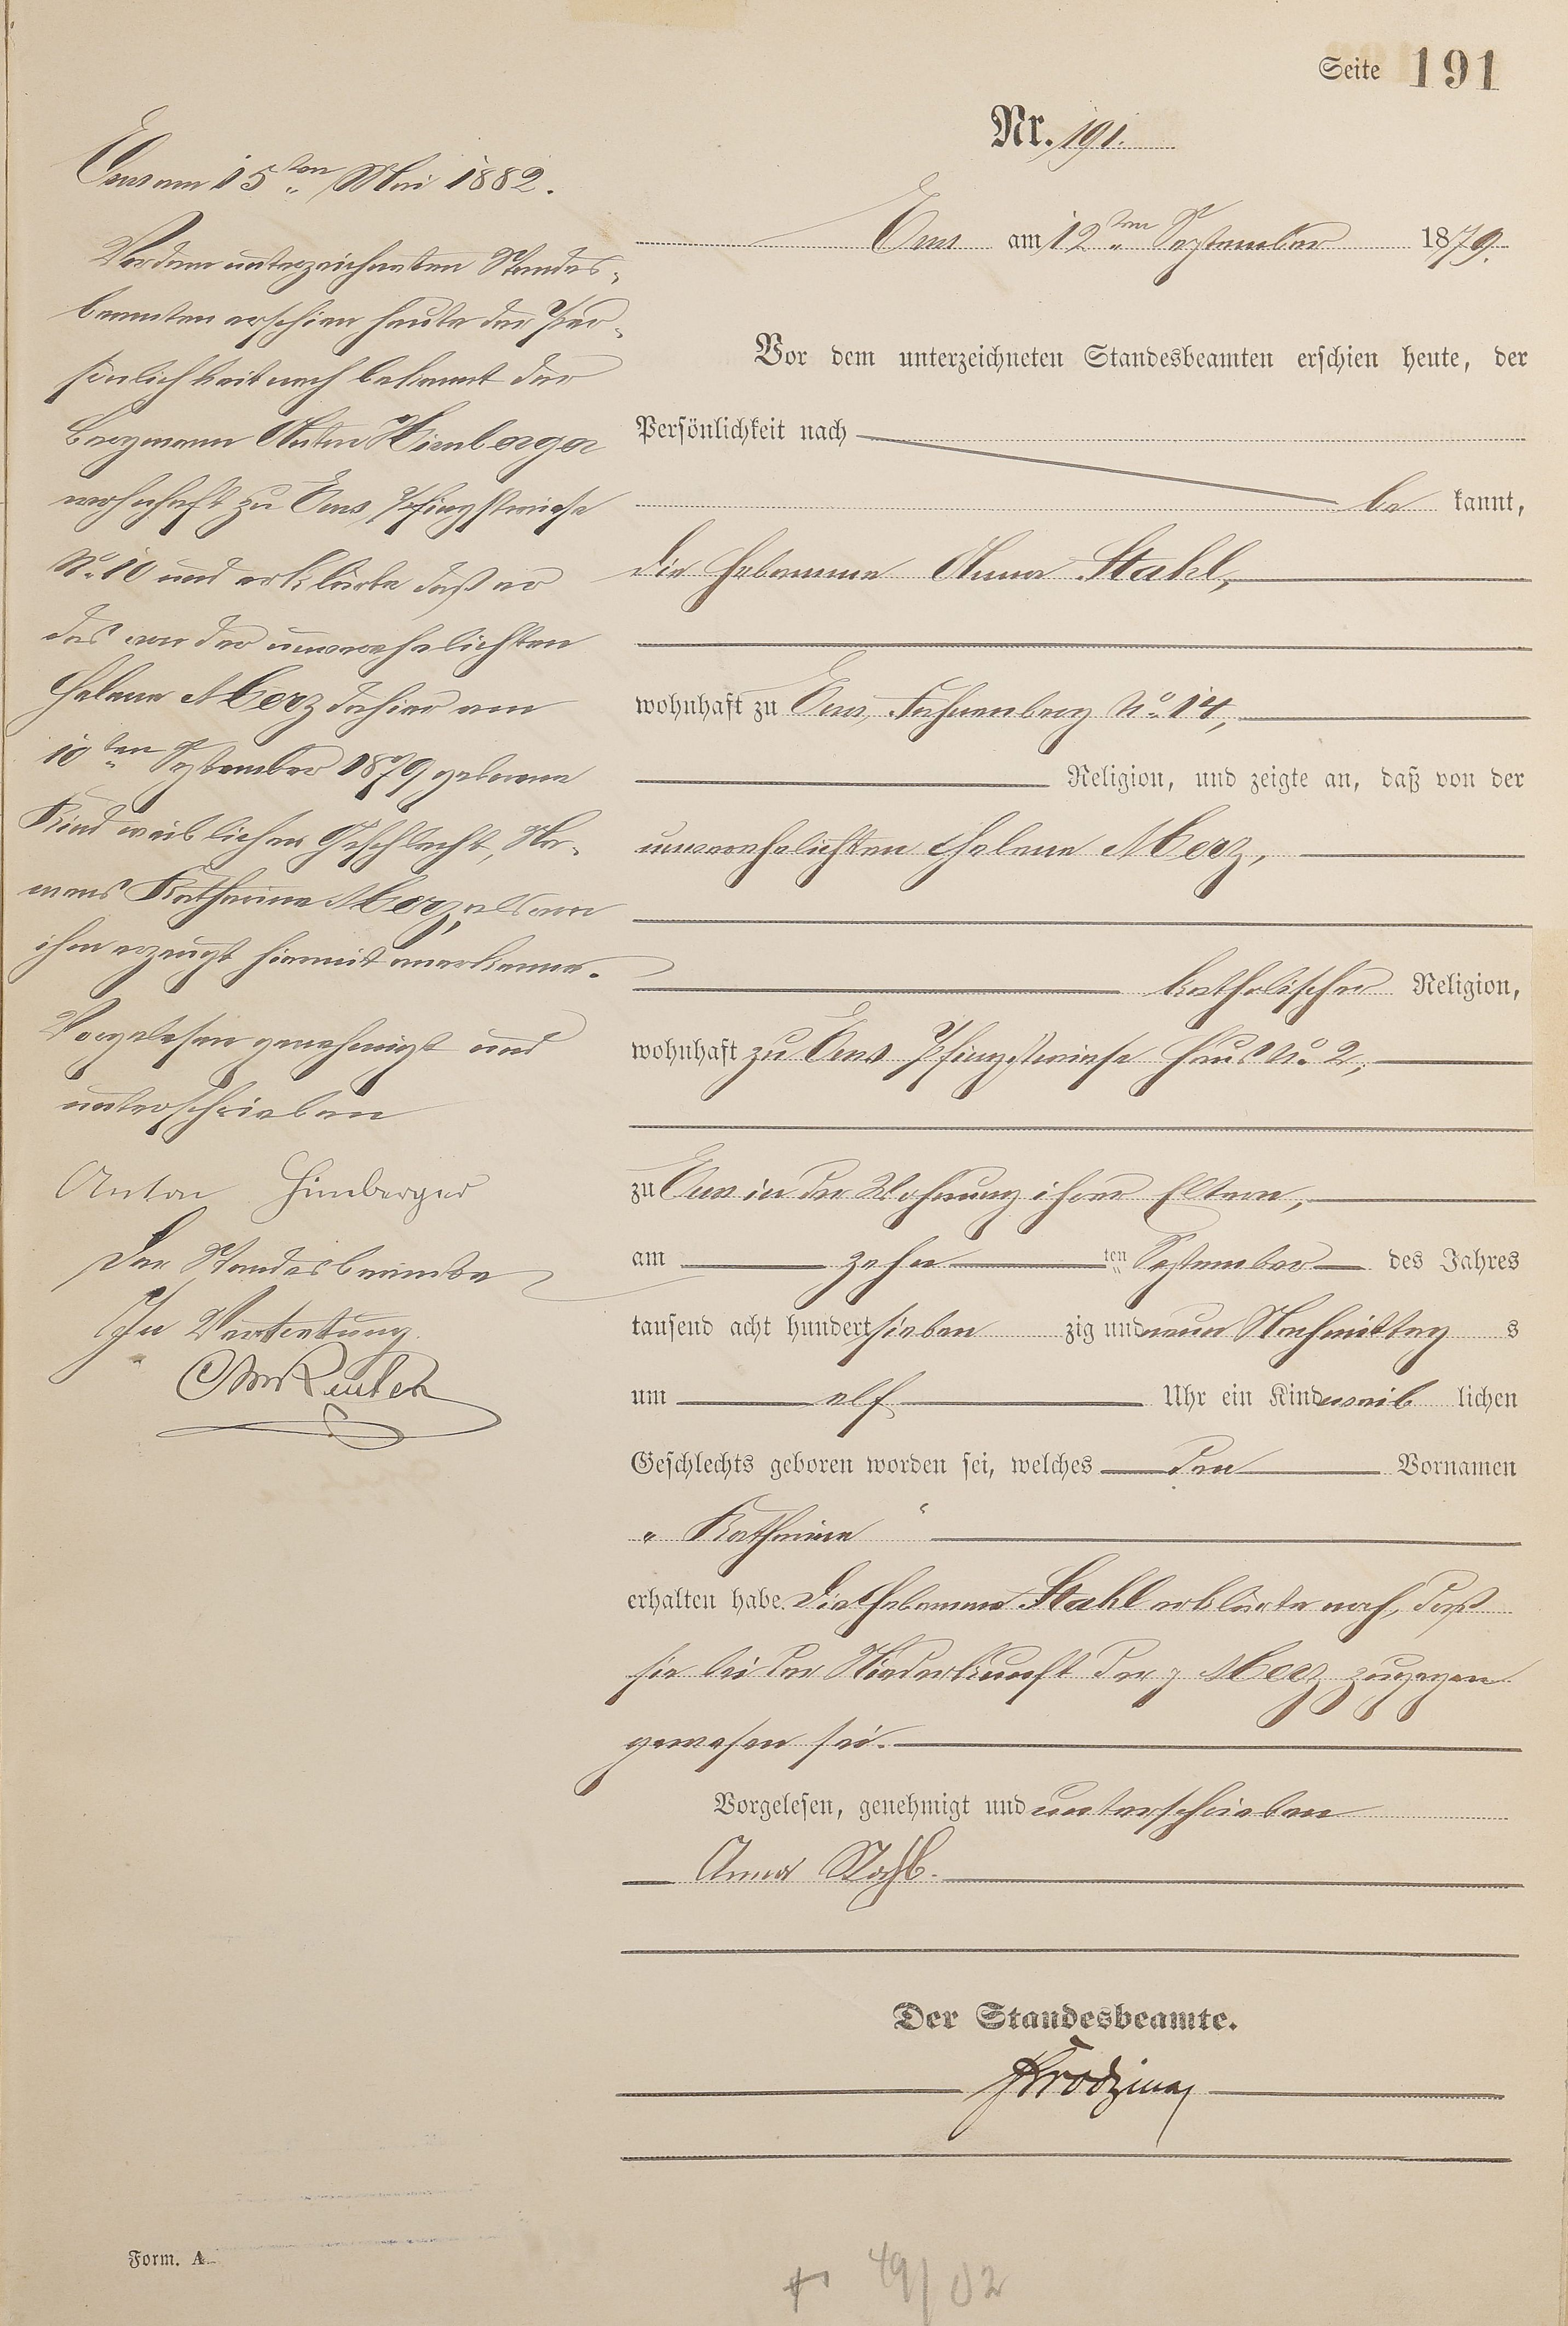 Seite 191
Nr. 191.
Ems am 12ten September 1879.
Vor dem unterzeichneten Standesbeamten erschien heute, der
Persönlichkeit nach
be kannt,
die Hebamme Anna Stahl,
wohnhaft zu Ems, No. 14,
Religion, und zeigte an, daß von der
unverehelichten Helene Merz,
katholischer Religion,
wohnhaft zu Ems Pfingstwiese Haus No. 2,
zu Ems in der Wohnung ihrer Eltern,
am zehn ten September des Jahres
tausend acht hundert sieben zig und neun Nachmittag s
um elf Uhr ein Kind weib lichen
Geschlechts geboren worden sei, welches den Vornamen
„Katharina“
erhalten habe. Die Hebamme Stahl erklärte noch, daß
sie bei der Niederkunft der Merz zugegen
gewesen sei.
Vorgelesen, genehmigt und unterschrieben
Anna Stahl.
Der Standesbeamte.
Ems am 15ten Mai 1882.
Vor dem unterzeichneten Standes-
beamten erschien heute der Per-
sönlichkeit nach bekannt der
Bergmann Anton Himberger
wohnhaft zu Ems, Pfingstwiese
No. 10 und erklärte daß er
das von der unverehelichten
Helene Merz dahier am
10ten September 1879 geborene
Kind weiblichen Geschlechts, Na-
mens Katharina Merz, als von
ihm erzeugt hiermit anerkenne.
Vorgelesen genehmigt und
unterschrieben
Anton Himberger
Der Standesbeamte
In Vertretung.
Form. A.
49/02